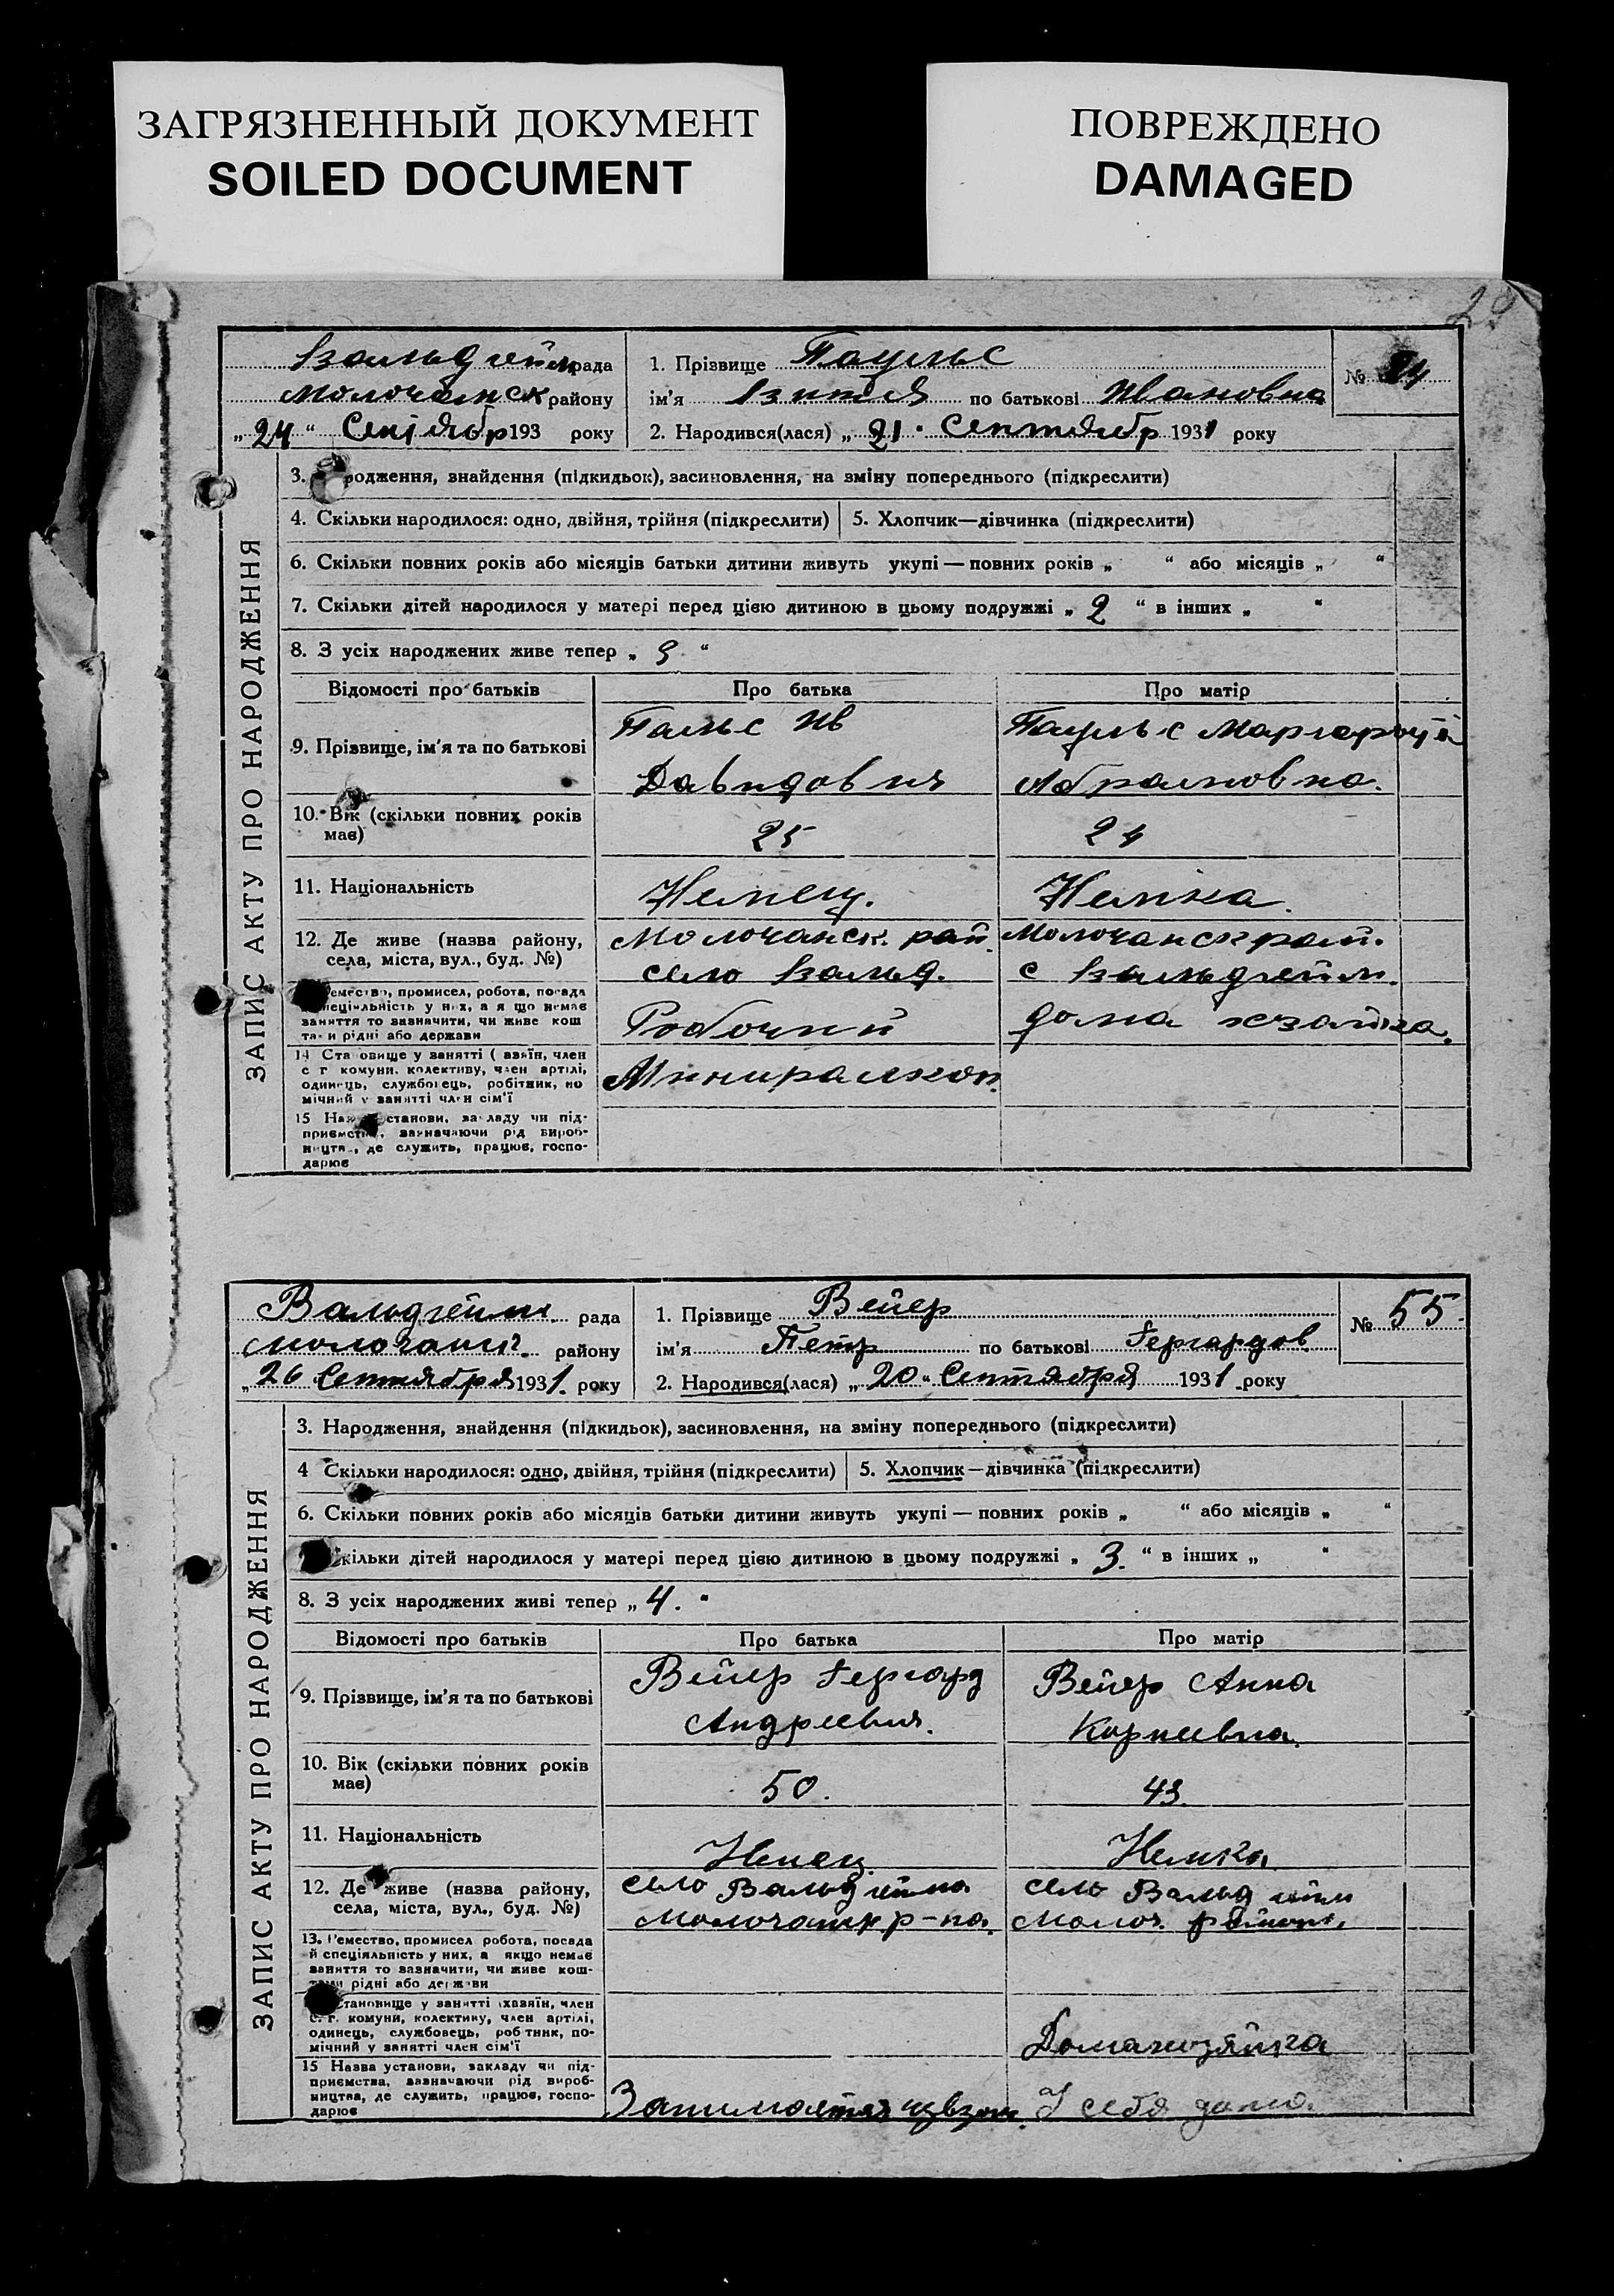 ЗАГРЯЗНЕННЫЙ ДОКУМЕНТ
SOILED DOCUMENT
ПОВРЕЖДЕНО
DAMAGED
Вальдгейм рада
Молочанск району
„24“ Сентябр 193 року
1. Прізвище Паульс
ім'я по батькові Ивановна
2. Народився(лася) „21“ Сентябр 1931 року
№
ЗАПИС АКТУ ПРО НАРОДЖЕННЯ
3. родження, знайдення (підкидьок), засиновлення, на зміну попереднього (підкреслити)
4. Скільки народилося: одно, двійня, трійня (підкреслити) 5. Хлопчик—дівчинка (підкреслити)
6. Скільки повних років або місяців батьки дитини живуть укупі — повних років „ “ або місяців „ “
7. Скільки дітей народилося у матері перед цією дитиною в цьому подружжі „ 2 “ в інших „ “
8. З усіх народжених живе тепер „ 3 “
Відомості про батьків Про батька Про матір
9. Прізвище, ім'я та по батькові
Пальс Ив
Давидович
Паульс Маргарыта
Абрамовна.
10. Вік (скільки повних років
має)
25
24
11. Національність Немец. Немка.
12. Де живе (назва району,
села, міста, вул., буд. №)
Молочанск. рай.
село Вальд.
Молочанск рай.
с Вальдгейм.
емество, промисел, робота, посада
спеціяльність у них, а я що немає
заняття то зазначити, чи живе кош
та и рідні або держави
Робочий
дома хозайка.
14 Становище у занятті ( авяїн, член
с г комуни, колективу, член артілі,
одинець, службовець, робітник, по
мічний у занятті член сім'ї
15 Наз станови, закладу чи під-
приємства, зазначаючи рід вироб-
ництва, де служить, працює, госпо-
дарює
Вальдгейм рада
Молочанск. району
„26 Сентября 1931. року
1. Прізвище Вейер
ім'я Петр по батькові Гергардов
2. Народився(лася) „20“ Сентября 1931 року
№ 55.
ЗАПИС АКТУ ПРО НАРОДЖЕННЯ
3. Народження, знайдення (підкидьок), засиновлення, на зміну попереднього (підкреслити)
4 Скільки народилося: одно, двійня, трійня (підкреслити) 5. Хлопчик—дівчинка (підкреслити)
6. Скільки повних років або місяців батьки дитини живуть укупі — повних років „ “ або місяців „ “
кільки дітей народилося у матері перед цією дитиною в цьому подружжі „ 3. “ в інших „ “
8. З усіх народжених живі тепер „ 4. “
Відомості про батьків Про батька Про матір
9. Прізвище, ім'я та по батькові
Вейер Гергард
Андреевич.
Вейер Анна
Корнеевна.
10. Вік (скільки повних років
має)
50.
43.
11. Національність Немец. Немка
12. Де живе (назва району,
села, міста, вул., буд. №)
село Вальдгейма
Молочанск р-на.
село Вальдгейм
Молоч. района.
13. Ремество, промисел робота, посада
й спеціяльність у них, а якщо немає
заняття то зазначити, чи живе кош-
тами рідні або держави
становище у занятті хазяїн, член
с. г. комуни, колективу, член артілі,
одинець, службовець, роб тник, по-
мічний у занятті член сім'ї
Домахозяйка
15 Назва установи, закладу чи під-
приємства, зазначаючи рід вироб-
ництва, де служить, працює, госпо-
дарює
Занимается
У себя дома.